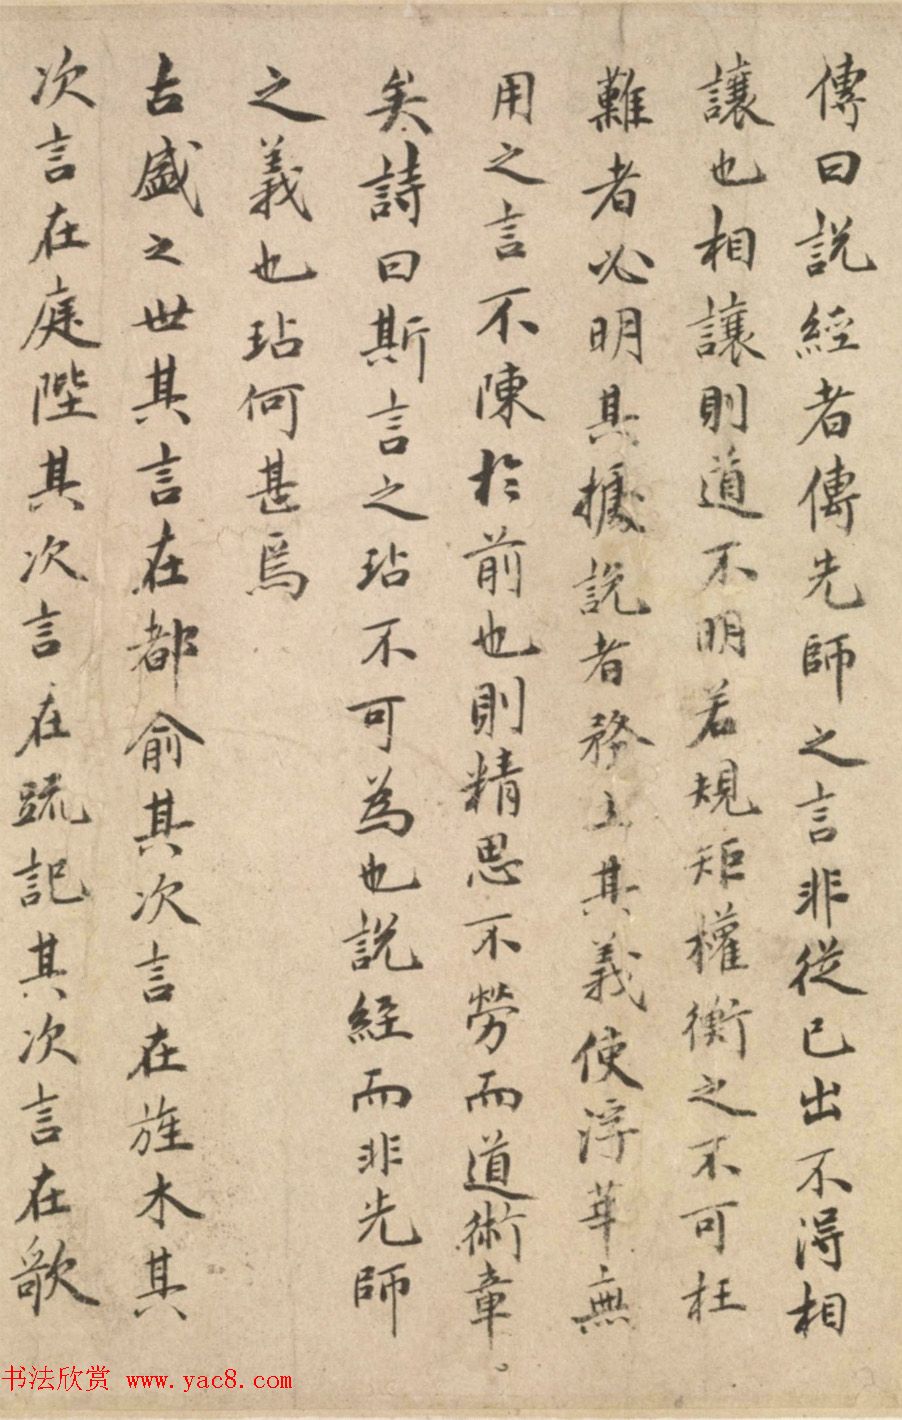 傳曰説經者傳先師之言非從己出不得相
讓也相讓則道不明若規矩權衡之不可枉
難者必明其據説者務立其義使浮華無
用之言不陳於前也則精思不勞而道術章。
矣詩曰斯言之玷不可為也説經而非先師
之義也玷何甚焉
古盛之世其言在都俞其次言在旌木其
次言在庭陛其次言在疏記其次言在歌
书法欣赏 www.yac8.com